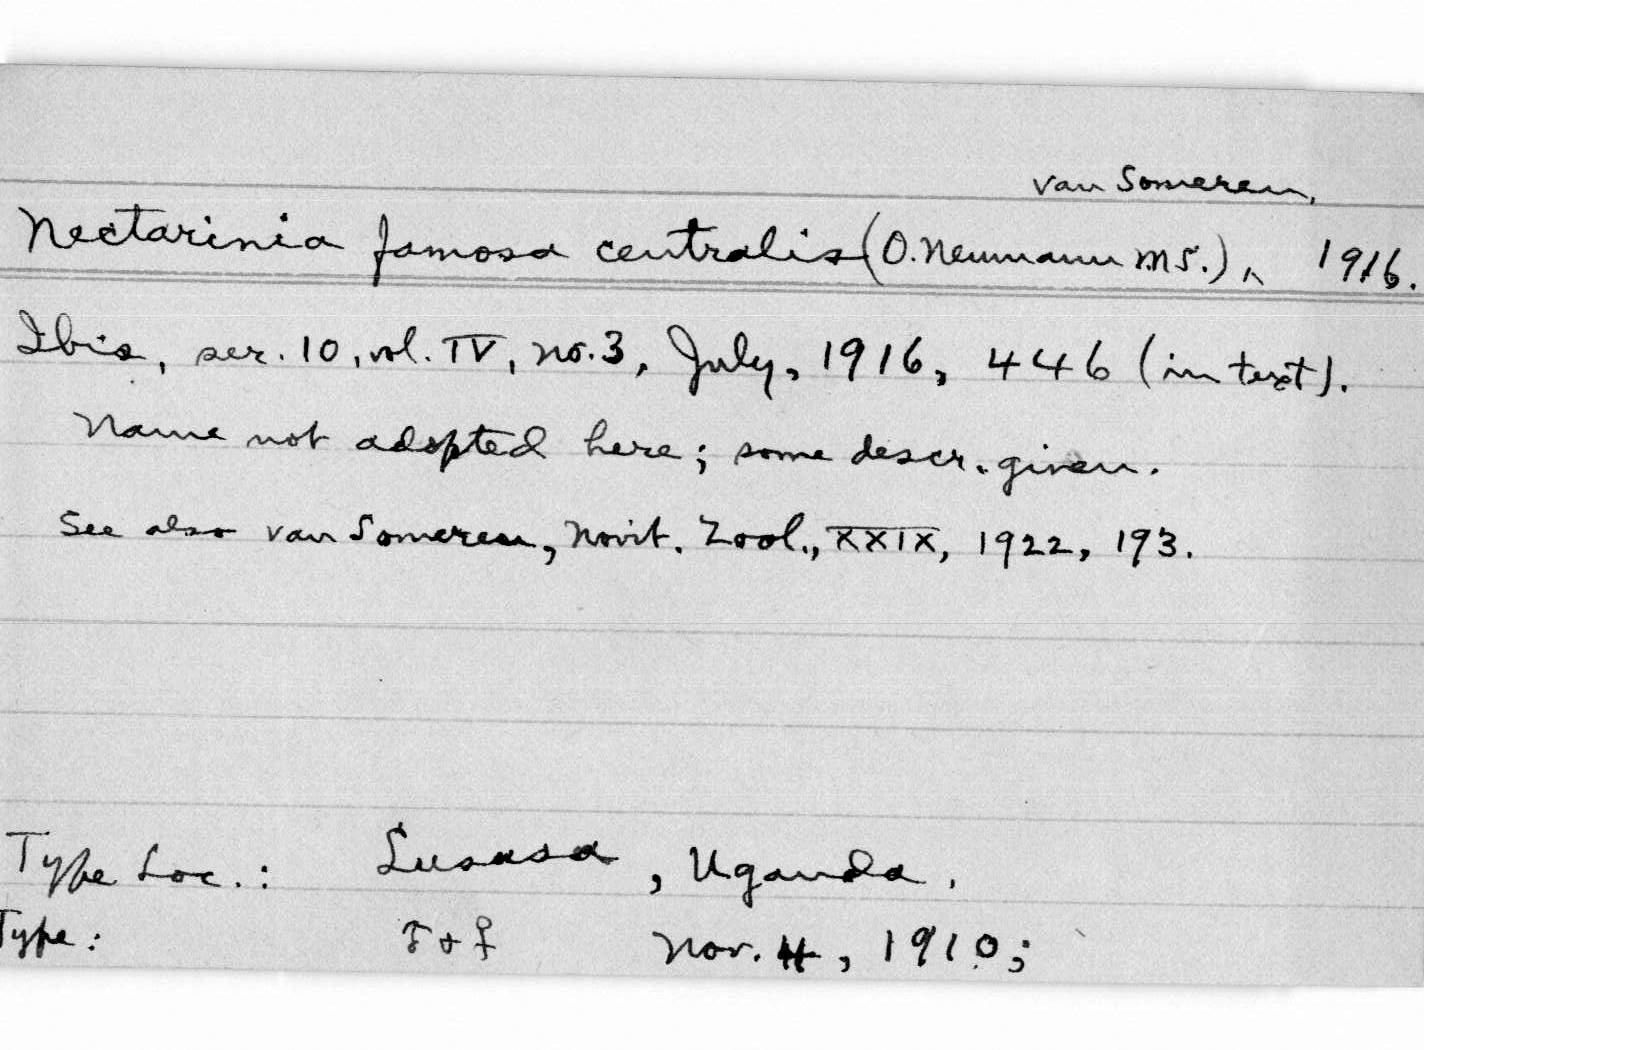 van Someren,
Nectarinia famosa centralis (O. Neumann MS.) ‸ 1916.
Ibis, ser. 10, vol. IV, no. 3, July, 1916, 446 (in text).
Name not adopted here; some descr. given.
See also van Someren, Novit. Zool., XXIX, 1922, 193.
Type Loc.: Lusasa, Uganda.
Type: ♂ + ♀ Nov. 4, 1910;